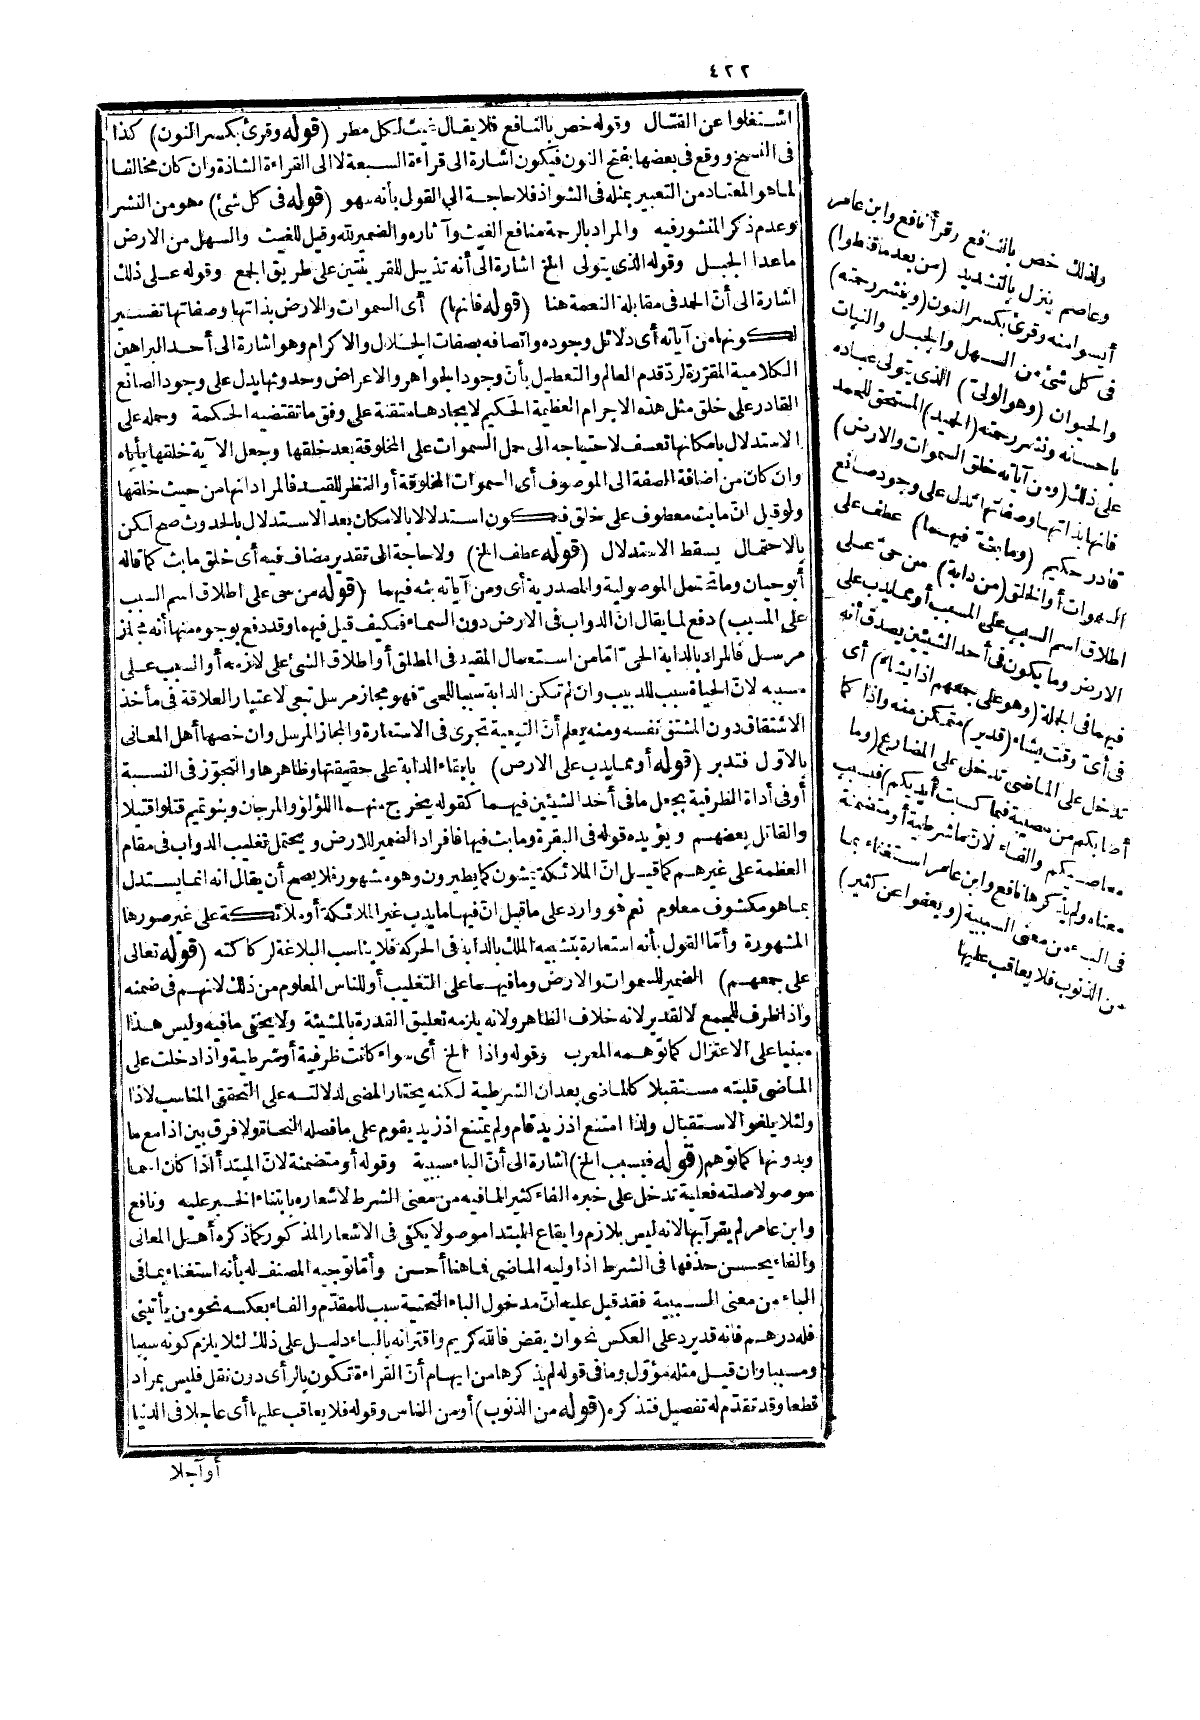 ٤٢٢
اشتغلوا عن القتال وقوله خص بالنافع فلا يقال غيث لكل مطر (قوله وقرئ بكسر النون) كذا
فى النسخ ووقع فى بعضها بفتح النون فيكون اشارة الى قراءة السبعة لا الى القراءة الشاذة وان كان مخالفا
لما هو المعتاد من التعبير بمثله فى الشواذ فلا حاجة الى القول بأنه سهو (قوله فى كل شئ) هو من النشر
وعدم ذكر المنشور فيه والمراد بالرحمة منافع الغيث وآثاره والضمير لله وقيل للغيث والسهل من الارض
ما عدا الجبل وقوله الذى يتولى الخ اشارة الى أنه تذييل للقرينتين على طريق الجمع وقوله على ذلك
اشارة الى أنّ الحمد فى مقابلة النعمة هنا (قوله فانها) أى السموات والارض بذاتها وصفاتها تفسير
لكونها من آياته أى دلائل وجوده واتصافه بصفات الجلال والاكرام وهو اشارة الى أحد البراهين
الكلامية المقرّرة لردّ قدم العالم والتعطيل بأنّ وجود الجواهر والاعراض وحدوثها يدل على وجود الصانع
القادر على خلق مثل هذه الاجرام العظيمة الحكيم لايجادها متقنة على وفق ما تقتضيه الحكمة وحمله على
الاستدلال بامكانها تعسف لاحتياجه الى حمل السموات على المخلوقة بعد خلقها وجعل الآية خلقها يأباه
وان كان من اضافة الصفة الى الموصوف أى السموات المخلوقة أو النظر للقيد فالمراد انها من حيث خلقها
ولو قيل انّ ما بث معطوف على خالق فيكون استدلالا بالامكان بعد الاستدلال بالحدوث صح لكن
بالاحتمال يسقط الاستدلال (قوله عطف الخ) ولا حاجة الى تقدير مضاف فيه أى خلق ما بث كما قاله
أبو حيان وما تحتمل الموصولية والمصدرية أى ومن آياته بثه فيهما (قوله من حى على اطلاق اسم السبب
على المسبب) دفع لما يقال ان الدواب فى الارض دون السماء فكيف قيل فيهما وقد دفع بوجوه منها أنه مجاز
مرسل فالمراد بالدابة الحىّ امّا من استعمال المقيد فى المطلق أو اطلاق الشئ على لازمه أو السبب على
مسببه لانّ الحياة سبب للدبيب وان لم تكن الدابة سببا للحى فهو مجاز مرسل تبعى لاعتبار العلاقة فى مأخذ
الاشتقاق دون المشتق نفسه ومنه يعلم أنّ التبعية تجرى فى الاستعارة والمجاز المرسل وان خصها أهل المعانى
بالاوّل فتدبر (قوله أو مما يدب على الارض) بابقاء الدابة على حقيقتها وظاهرها والتجوّز فى النسبة
أو فى أداة الظرفية بجعل ما فى أحد الشيئين فيهما كقوله يخرج منهما اللؤلؤ والمرجان وبنو تميم قتلوا قتيلا
والقاتل بعضهم ويؤيده قوله فى البقرة وما بث فيها فافراد الضمير للارض ويحتمل تغليب الدواب فى مقام
العظمة على غيرهم كما قيل انّ الملائكة يمشون كما يطيرون وهو مشهور فلا يصح أن يقال انه انما يستدل
بما هو مكشوف معلوم نعم هو وارد على ما قيل انّ فيها ما يدب غير الملائكة أو ملائكة على غير صورها
المشهورة وأمّا القول بأنه استعارة بتشبيه الملك بالدابة فى الحركة فلا يناسب البلاغة لركاكته (قوله تعالى
على جمعهم) الضمير للسموات والارض وما فيهما على التغليب أو للناس المعلوم من ذلك لانهم فى ضمنه
واذا ظرف للجمع لا لقدير لانه خلاف الظاهر ولانه يلزمه تعليق القدرة بالمشيئة ولا يخفى ما فيه وليس هذا
مبنيا على الاعتزال كما توهمه المعرب وقوله واذا الخ أى سواء كانت ظرفية أو شرطية واذا دخلت على
الماضى قلبته مستقبلا كالماضى بعد ان الشرطية لكنه يختار المضى لدلالته على التحقق المناسب لاذا
ولئلا يلغو الاستقبال ولذا امتنع اذ زيد قام ولم يمتنع اذ زيد يقوم على ما فصله النحاة ولا فرق بين اذا مع ما
وبدونها كما توهم (قوله فبسبب الخ) اشارة الى أنّ الباء سببية وقوله أو متضمنة لانّ المبتدأ اذا كان اسما
موصولا صلته فعلية تدخل على خبره الفاء كثير المافيه من معنى الشرط لاشعاره بابتناء الخبر عليه ونافع
وابن عامر لم يقرآ بها لانه ليس بلازم وايقاع المبتدا موصولا يكفى فى الاشعار المذكور كما ذكره أهل المعانى
والفاء يحسن حذفها فى الشرط اذا وليه الماضى فما هنا أحسن وأمّا توجيه المصنف له بأنه استغناء بما فى
الباء من معنى السببية فقد قيل عليه انّ مدخول الباء التحتية سبب للمقدّم والفاء بعكسه نحو من يأتينى
فله درهم فانه قد يرد على العكس نحو ان يقض فالله كريم واقترانه بالباء دليل على ذلك لئلا يلزم كونه سببا
ومسببا وان قيل مثله مؤوّل وما فى قوله لم يذكرها من ايهام أنّ القراءة تكون بالرأى دون نقل فليس بمراد
قطعا وقد تقدّم له تفصيل فتذكره (قوله من الذنوب) أو من الناس وقوله فلا يعاقب عليها أى عاجلا فى الدنيا
أو آجلا
ولذلك خص بالنافع وقرأ نافع وابن عامر
وعاصم ينزل بالتشديد (من بعد ما قنطوا)
أيسوا منه وقرئ بكسر النون (وينشر رحمته)
فى كل شئ من السهل والجبل والنبات
والحيوان (وهو الولىّ) الذى يتولى عباده
باحسانه ونشر رحمته (الحميد) المستحق للحمد
على ذلك (ومن آياته خلق السموات والارض)
فانها بذاتها وصفاتها تدل على وجود صانع
قادر حكيم (وما بث فيهما) عطف على
السموات أو الخلق (من دابة) من حىّ على
اطلاق اسم السبب على المسبب أو مما يدب على
الارض وما يكون فى أحد الشيئين يصدق أنه
فيهما فى الجملة (وهو على جمعهم اذا يشاء) أى
فى أىّ وقت يشاء (قدير) متمكن منه واذا كما
تدخل على الماضى تدخل على المضارع (وما
أصابكم من مصيبة فبما كسبت أيديكم) فبسبب
معاصيكم والفاء لانّ ما شرطية أو متضمنة
معناه ولم يذكرها نافع وابن عامر استغناء بما
فى الباء من معنى السببية (ويعفوا عن كثير)
من الذنوب فلا يعاقب عليها